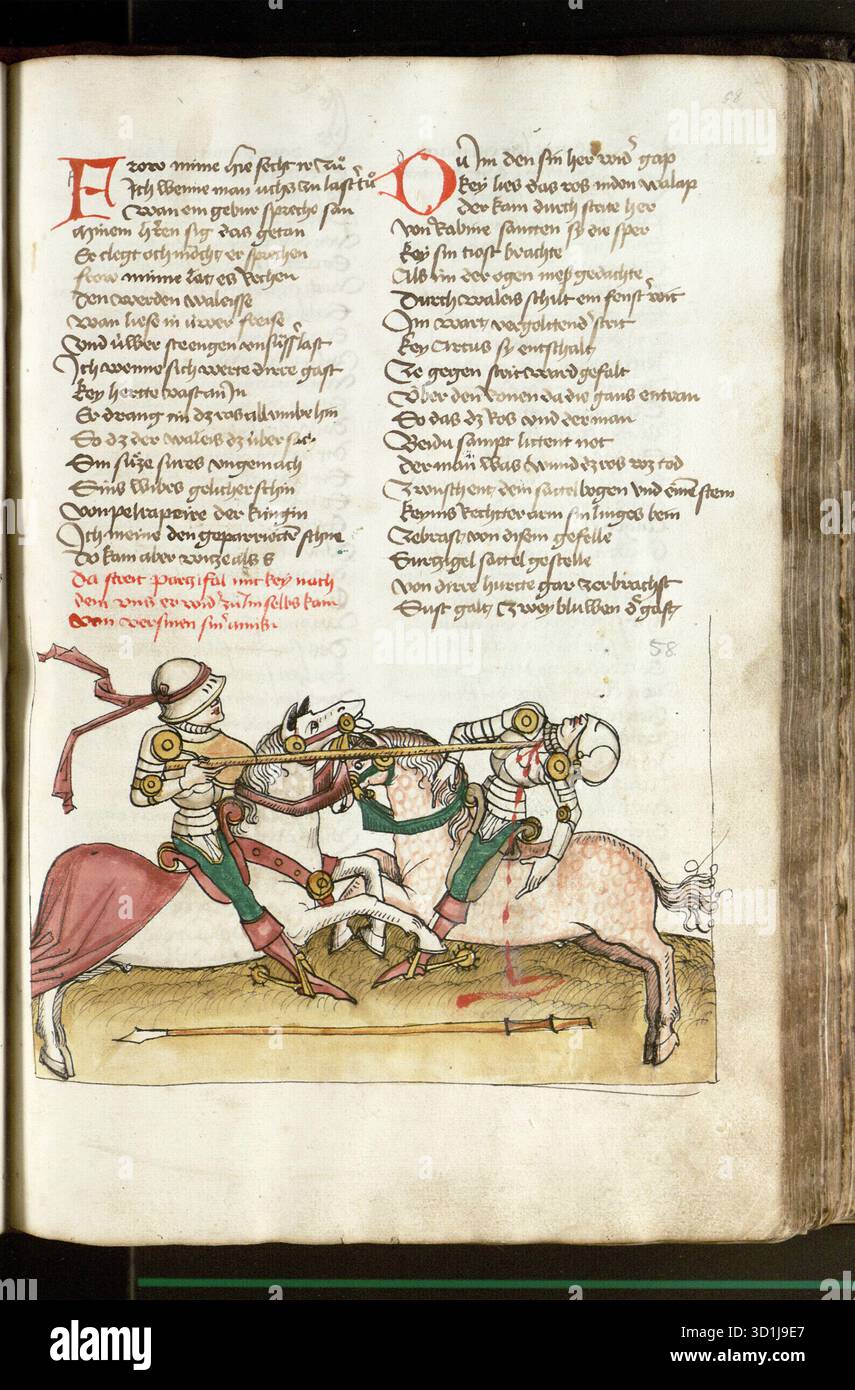 58
Frow minne hie secht ir zů
Ich wenne man uchs zu laster tů
Wan ein gebur spreche san
Minem herren sig das getan
Er clegt och mocht er sprechen
frow minne lat es Rechen
Den werden waleisse
wan liese in uwer freise
Und uwer strengen unsuss last
Ich wenne sich werte dirre gast
key hertte vast an In
Er drang im dz ros all umbe hin
So dz der waleis dz über sach
Sin süze sures ungemach
Sins wibes gelicher schin
von pelrapeire der kungin
Ich meine den geparrierten schne
Do kam aber witze als e
Da streit parzifal mit key nach
dem uns er wid zu im selbs kam
von versinen sinr amien
Dů Im den sin her wider gap
key lies das ros in den walap
der kam durch strite her
von Rabine sancten sy die sper
key sin tiost brachte
Als im der ogen mess gedachte
Durch waleis schilt ein fenster wit
Im wart vergoltten der strit
key Artus sy entschalt
Ze gegen strit ward gefalt
Über den ronen da die gans entran
So das dz Ros und der man
Beidu sampt littent not
der man was wund dz ros roz tod
Zwuschent dem sattelbogen und einem stein
keyns Rechter arm sin linges bein
Zebrast von disem gefelle
Surzigel sattel gestelle
von dirre hurtte gar zerbrachst
Sust galt zwey bluwen der gast
58
alamy
Image ID: 3D1J9E7
www.alamy.com